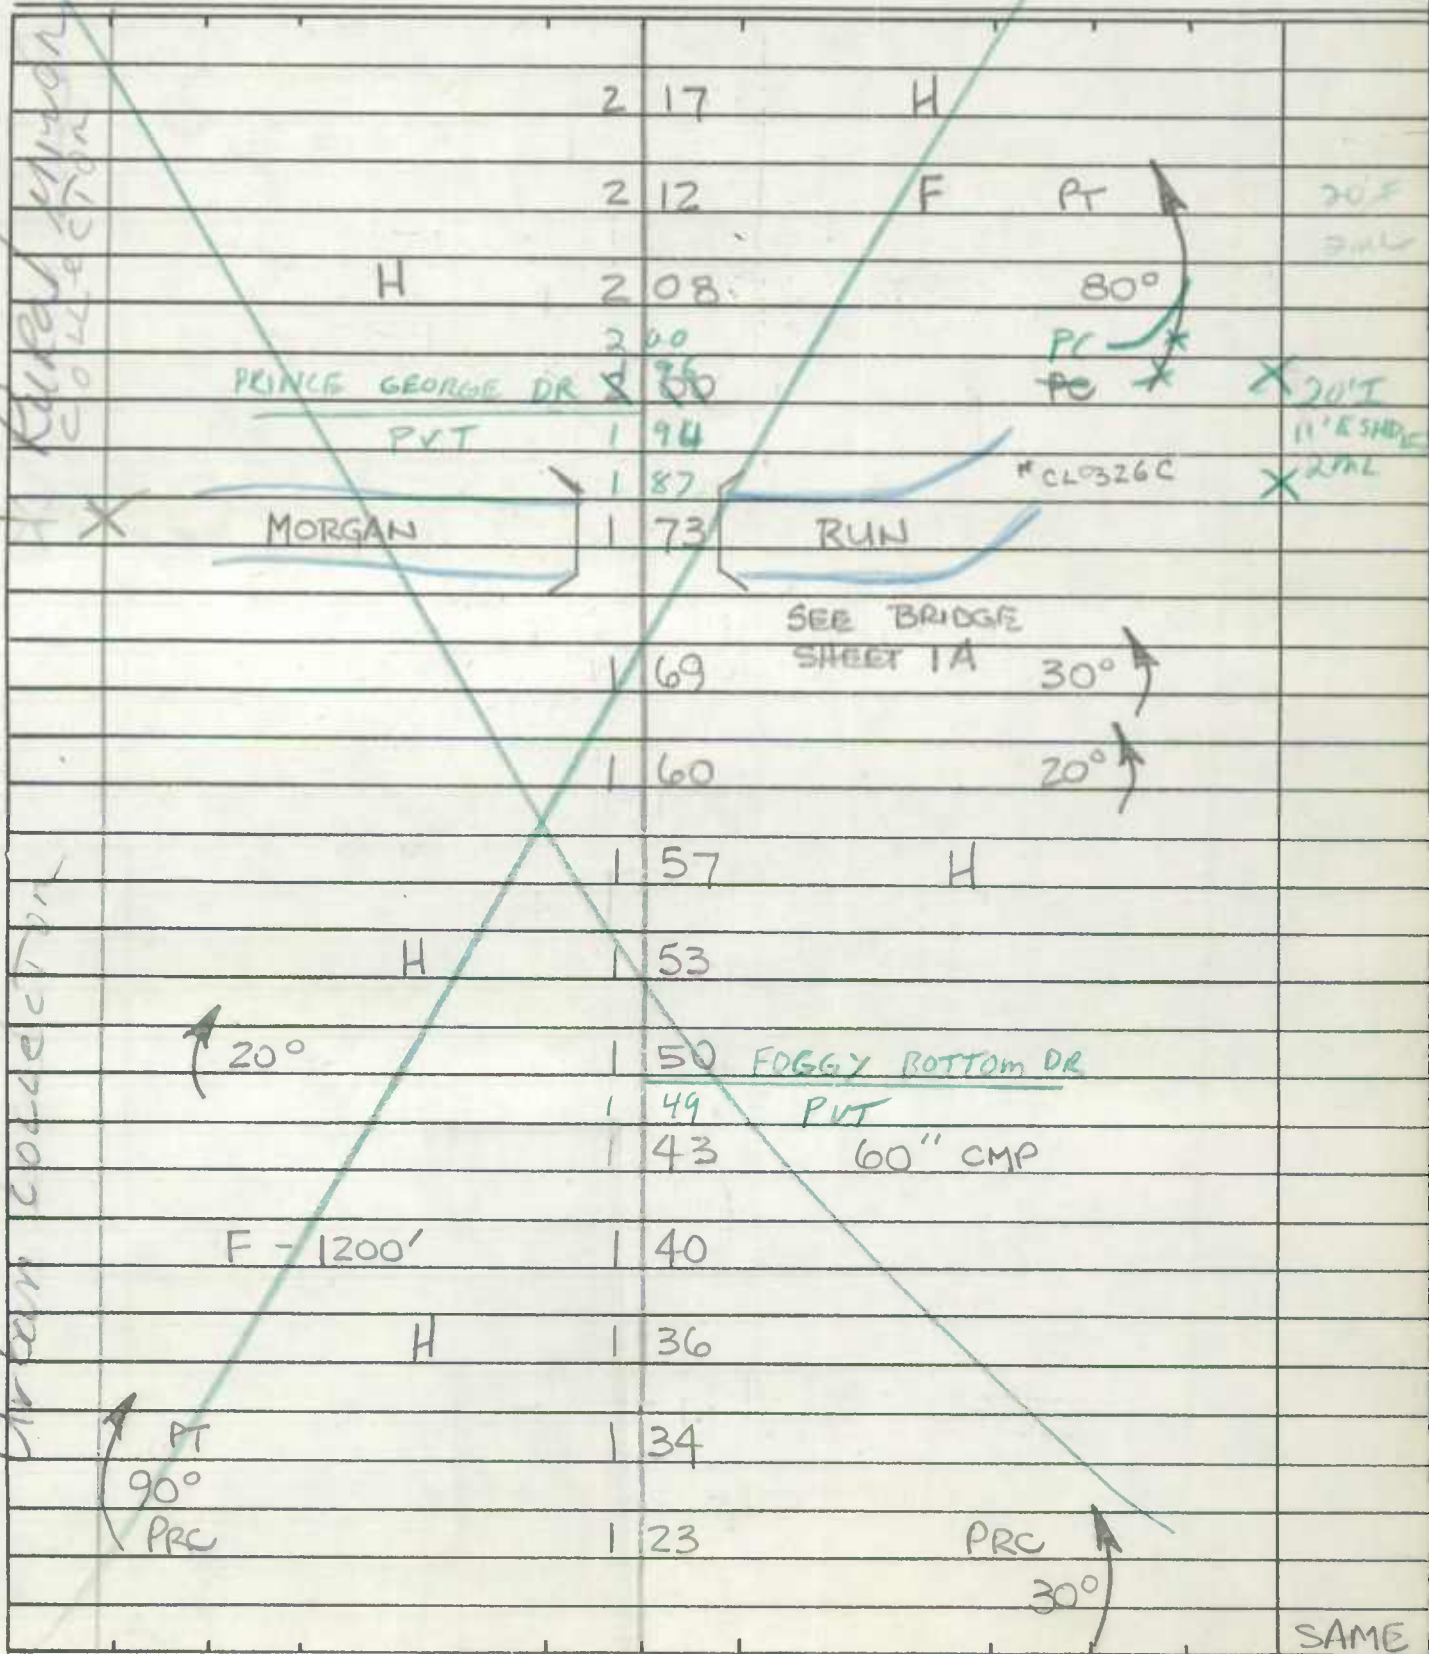 Rural Minor
COLLECTOR
2 17 H
2 12 F PT 20'F
2ML
H 2 08 80°
2 00 PC
PRINCE GEORGE DR 1 96 PC 20'I
PVT 1 94
1 87 CL0326C 2ML
MORGAN 1 73 RUN
SEE BRIDGE
SHEET 1A
1 69 30°
1 60 20°
1 57 H
H 1 53
20° 1 50 FOGGY BOTTOM DR
1 49 PVT
1 43 60" CMP
F - 1200' 1 40
H 1 36
PT 1 34
90°
PRC 1 23 PRC
30°
SAME
Urban COLLECTOR